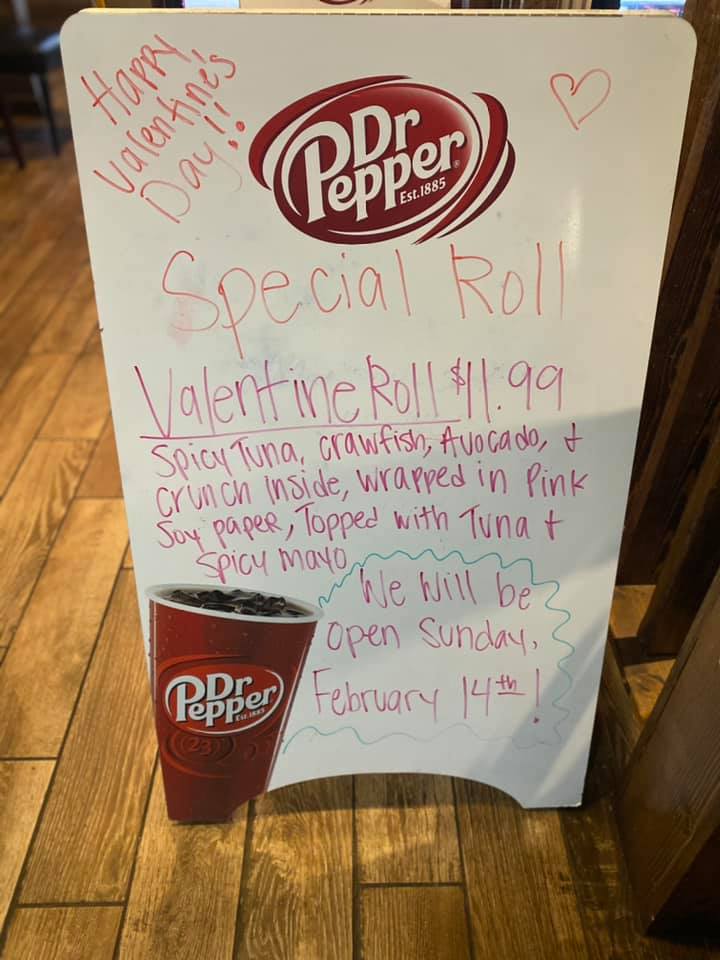 Happy
Valentine's
Day!!
Dr
Pepper
Est.1885
Special Roll
Valentine Roll $11.99
Spicy Tuna, crawfish, Avocado, +
crunch Inside, wrapped in Pink
Soy paper, Topped with Tuna +
Spicy mayo
We Will be
Open Sunday,
February 14th!
Dr
Pepper
Est.1885
23